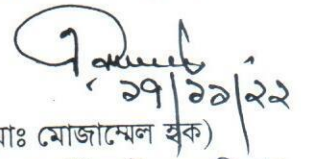 ১৭|১১|২২
াঃ মোজাম্মেল হক)